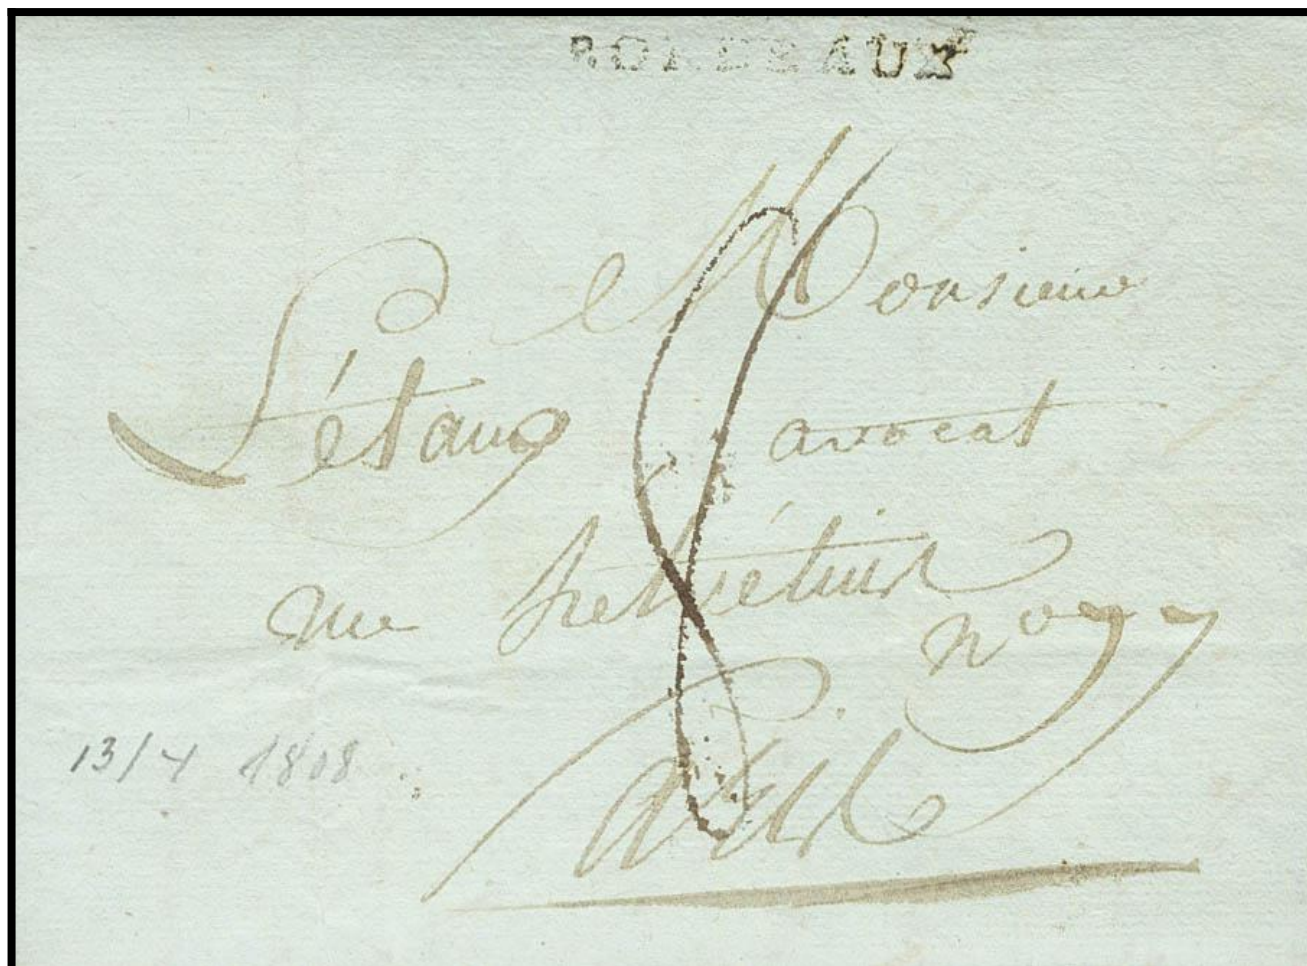 BORDEAUX
Monsieur
Létang avocat
rue
n° 77
Paris
8
13/4 1808